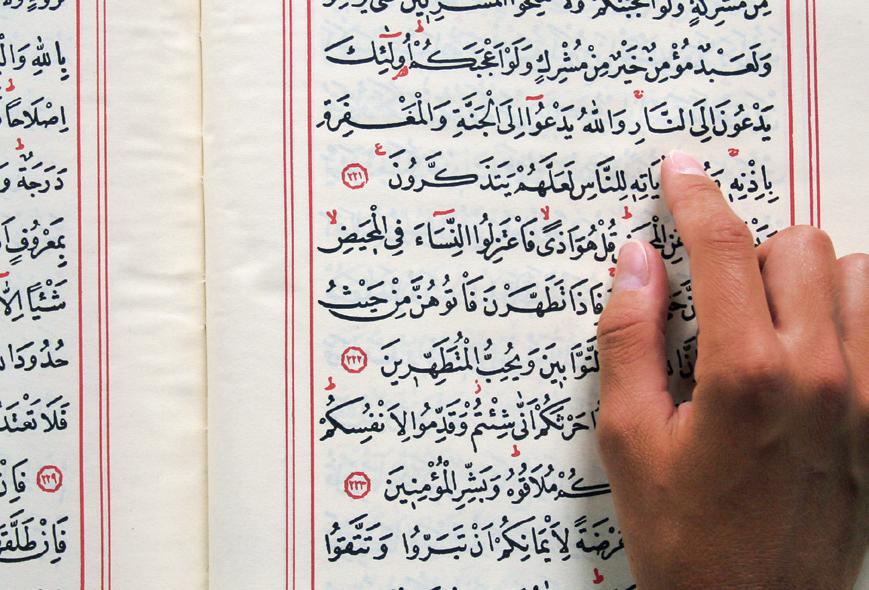 مِنْ مُشْرِكَةٍ وَلَوْ اَعْجَبَتْكُمْ وَلَا
وَلَعَبْدٌ مُؤْمِنٌ خَيْرٌ مِنْ مُشْرِكٍ وَلَوْ اَعْجَبَكُمْ اُولٰٓئِكَ
يَدْعُونَ اِلَى النَّارِ وَاللّٰهُ يَدْعُٓوا اِلَى الْجَنَّةِ وَالْمَغْفِرَةِ
بِاِذْنِهٖ يَاتِهٖ لِلنَّاسِ لَعَلَّهُمْ يَتَذَكَّرُونَ ﴿٢٢١﴾
قُلْ هُوَ اَذًى فَاعْتَزِلُوا النِّسَٓاءَ فِي الْمَحٖيضِ
فَاِذَا تَطَهَّرْنَ فَأْتُوهُنَّ مِنْ حَيْثُ
التَّوَّابٖينَ وَيُحِبُّ الْمُتَطَهِّرٖينَ ﴿٢٢٢﴾
حَرْثَكُمْ اَنّٰى شِئْتُمْ وَقَدِّمُوا لِاَنْفُسِكُمْ
كُمْ مُلَاقُوهُ وَبَشِّرِ الْمُؤْمِنٖينَ ﴿٢٢٣﴾
عُرْضَةً لِاَيْمَانِكُمْ اَنْ تَبَرُّوا وَتَتَّقُوا
بِاللّٰهِ
اِصْلَاحًا
دَرَجَةٌ
بِمَعْرُوفٍ
شَيْـًٔا
حُدُودَ
فَلَا تَعْتَدُ
﴿٢٢٩﴾ فَاِنْ
فَاِنْ طَلَّقَهَا